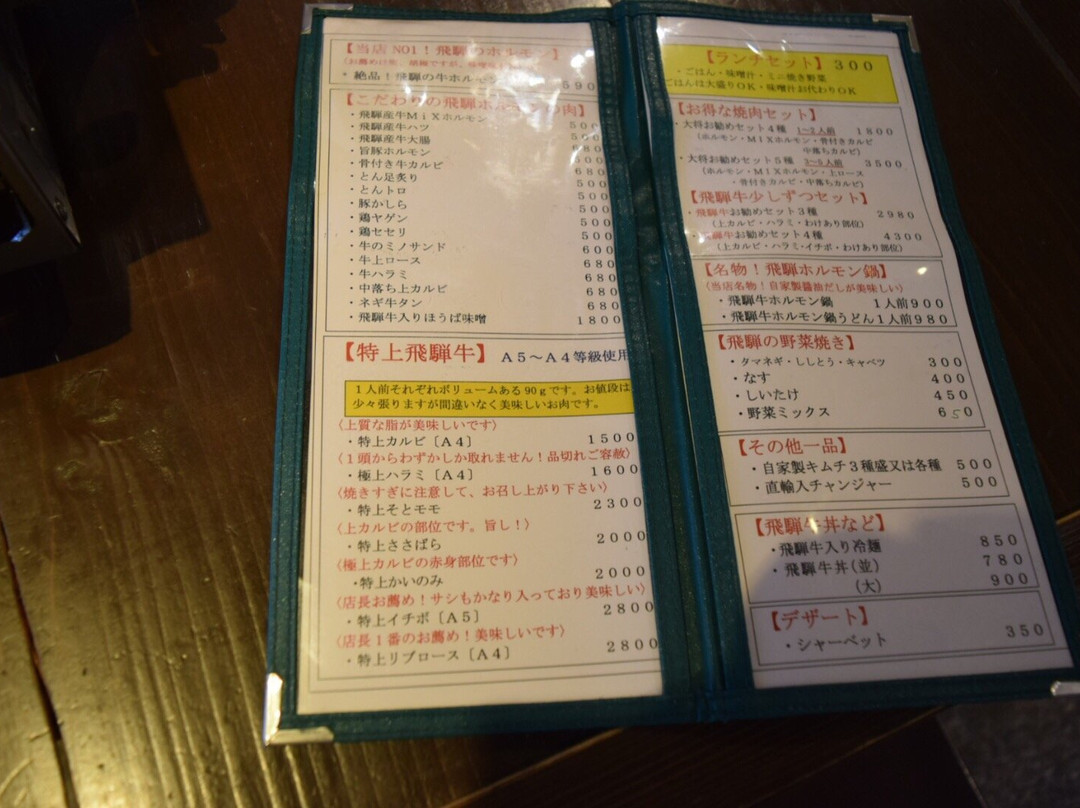 【当店 NO1！飛騨のホルモン】
〈お薦めは塩、胡椒ですが、味噌味
・絶品！飛騨の牛ホルモン 590
【こだわりの飛騨ホルモンの肉】
・飛騨産牛ＭｉＸホルモン
・飛騨産牛ハツ 500
・飛騨産牛大腸 500
・旨豚ホルモン
・骨付き牛カルビ 680
・とん足炙り 500
・とんトロ 500
・豚かしら 500
・鶏ヤゲン 500
・鶏セセリ 500
・牛のミノサンド 600
・牛上ロース 680
・牛ハラミ 680
・中落ち上カルビ 680
・ネギ牛タン 680
・飛騨牛入りほうば味噌 1800
【特上飛騨牛】 Ａ５～Ａ４等級使用
１人前それぞれボリュームある 90ｇです。お値段は
少々張りますが間違いなく美味しいお肉です。
〈上質な脂が美味しいです〉
・特上カルビ〔Ａ４〕 1500
〈１頭からわずかしか取れません！品切れご容赦〉
・極上ハラミ〔Ａ４〕 1600
〈焼きすぎに注意して、お召し上がり下さい〉
・特上そとモモ 2300
〈上カルビの部位です。旨し！〉
・特上ささばら 2000
〈極上カルビの赤身部位です〉
・特上かいのみ 2000
〈店長お薦め！サシもかなり入っており美味しい〉
・特上イチボ〔Ａ５〕 2800
〈店長１番のお薦め！美味しいです〉
・特上リブロース〔Ａ４〕 2800
【ランチセット】 300
・ごはん・味噌汁・ミニ焼き野菜
ごはんは大盛りＯＫ・味噌汁お代わりＯＫ
【お得な焼肉セット】
・大将お勧めセット４種 1～2人前 1800
（ホルモン・ＭＩＸホルモン・骨付きカルビ
中落ちカルビ）
・大将お勧めセット５種 3～5人前 3500
（ホルモン・ＭＩＸホルモン・上ロース
・骨付きカルビ・中落ちカルビ）
【飛騨牛少しずつセット】
・飛騨牛お勧めセット３種 2980
（上カルビ・ハラミ・わけあり部位）
・飛騨牛お勧めセット４種 4300
（上カルビ・ハラミ・イチボ・わけあり部位）
【名物！飛騨ホルモン鍋】
〈当店名物！自家製醤油だしが美味しい〉
・飛騨牛ホルモン鍋 １人前900
・飛騨牛ホルモン鍋うどん１人前980
【飛騨の野菜焼き】
・タマネギ・ししとう・キャベツ 300
・なす 400
・しいたけ 450
・野菜ミックス 650
【その他一品】
・自家製キムチ３種盛又は各種 500
・直輸入チャンジャー 500
【飛騨牛丼など】
・飛騨牛入り冷麺 850
・飛騨牛丼（並） 780
（大） 900
【デザート】
・シャーベット 350